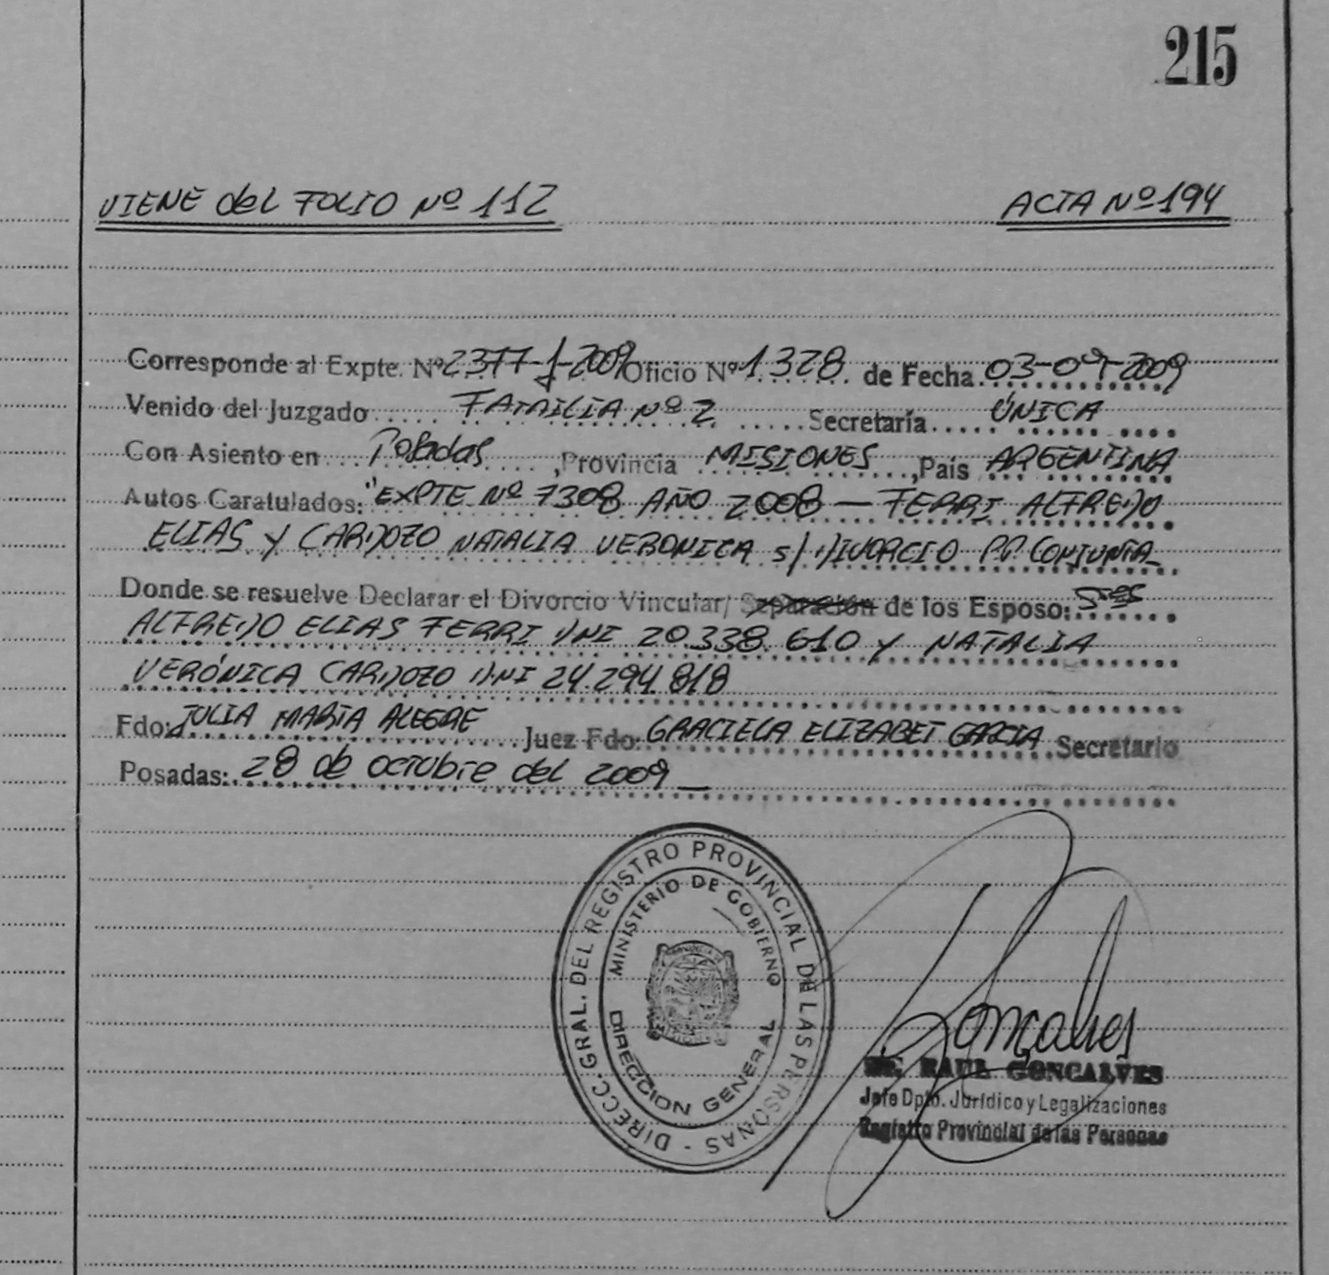 215
VIENE del FOLIO Nº 112 ACTA Nº 194
Corresponde al Expte. Nº 2377-J-2009 Oficio Nº 1328 de Fecha 03-09-2009
Venido del Juzgado FAMILIA Nº 2 Secretaría ÚNICA
Con Asiento en Posadas, Provincia MISIONES, País ARGENTINA
Autos Caratulados: "EXPTE Nº 7308 AÑO 2008 — FERRI ALFREDO
ELIAS Y CARDOZO NATALIA VERONICA s/ DIVORCIO PP CONJUNTA
Donde se resuelve Declarar el Divorcio Vincular/ Separación de los Esposo: Sres
ALFREDO ELIAS FERRI DNI 20.338.610 Y NATALIA
VERÓNICA CARDOZO DNI 24.294.818
Fdo: JULIA MARIA ALEGRE Juez Fdo: GRACIELA ELIZABET GARCIA Secretario
Posadas: 28 de octubre del 2009
DIRECC. GRAL. DEL REGISTRO PROVINCIAL DE LAS PERSONAS -
MINISTERIO DE GOBIERNO
DIRECCION GENERAL
Goncalves
RAUL GONCALVES
Jefe Dpto. Jurídico y Legalizaciones
Registro Provincial de las Personas